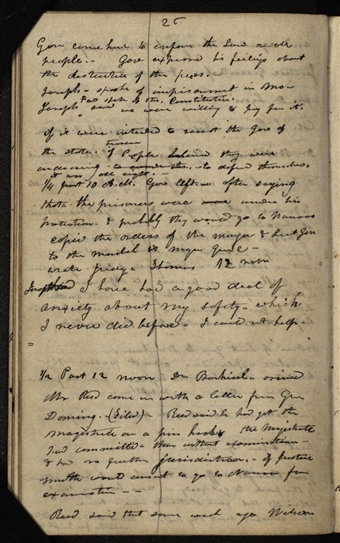 25
Gov came here to enforce the Law on the
people. - Gov expressed his feelings about
the destruction of the press.
Joseph - spoke of imprisonment in Mo
Joseph spoke to the Constitution.
said we were willing to pay for it.
If it were intended to resist the Gov of
the state. People they were
to defend themselves.
it was all right. -
1/4 past 10 A.M. Gov left after saying
that the prisoners were under his
protection & probably they would go to Nauvoo
copied the orders of the mayor & Lieut Gen
to the marshal & Major Genl -
wrote Judge Thomas 12 noon
Joseph I have had a good deal of
anxiety about my safety - which
I never did before - I could not help -
1/2 Past 12 noon Dr Bernhisel arrived
Mr Reed come in with a letter from Gen
Deming - Reed said he had got the
magistrate on a pin hook the Majistrate
had committed them without examination -
& had no further jurisdiction - if Justice
Smith would consent to go to Nauvoo for
examination - -
Reed said that some week ago Wilson